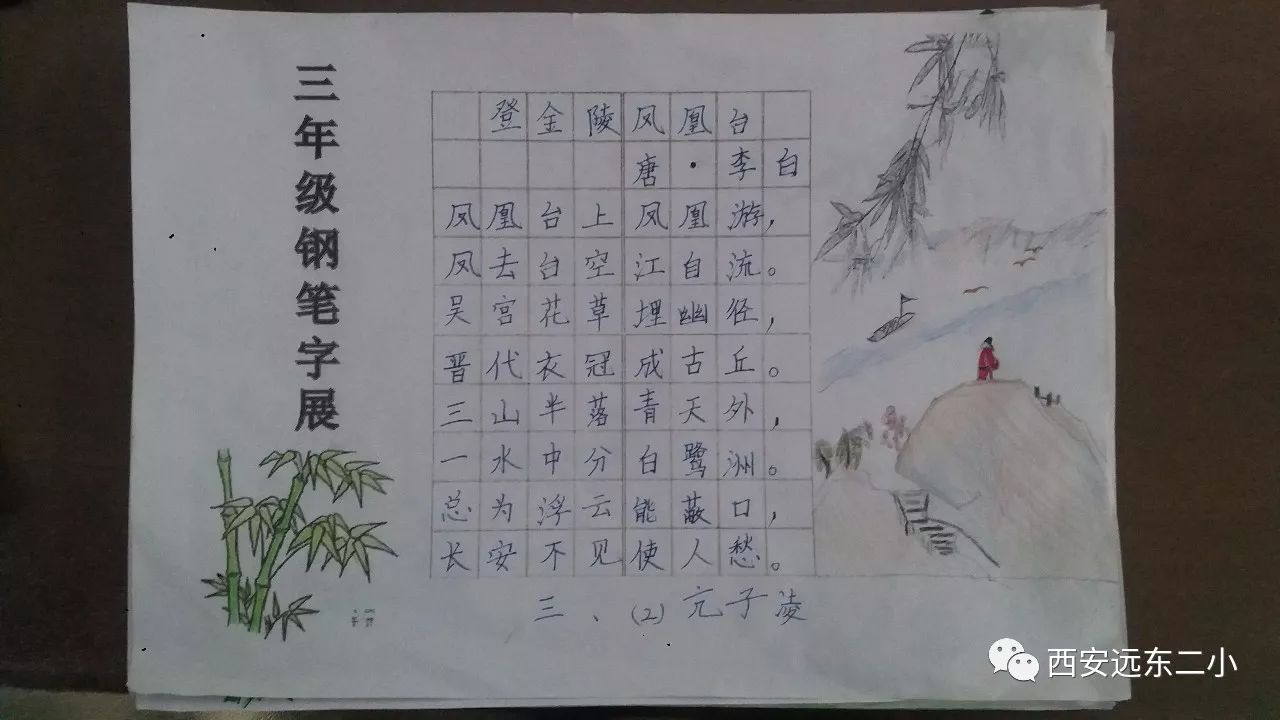 三年级钢笔字展
登金陵凤凰台
唐·李白
凤凰台上凤凰游,
凤去台空江自流。
吴宫花草埋幽径,
晋代衣冠成古丘。
三山半落青天外,
一水中分白鹭洲。
总为浮云能蔽口,
长安不见使人愁。
三、(2)亢子凌
西安远东二小